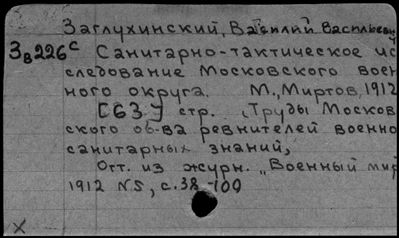 Заглухинский, Василий Васильевич
Зв226с Санитарно-тактическое ис
следование Московского воен
ного округа. М., Миртов, 1912
[63] стр. „Труды Москов
ского об-ва ревнителей военно
санитарных знаний,
Отт. из журн. „Военный мир
1912 №5, с. 38-100
х